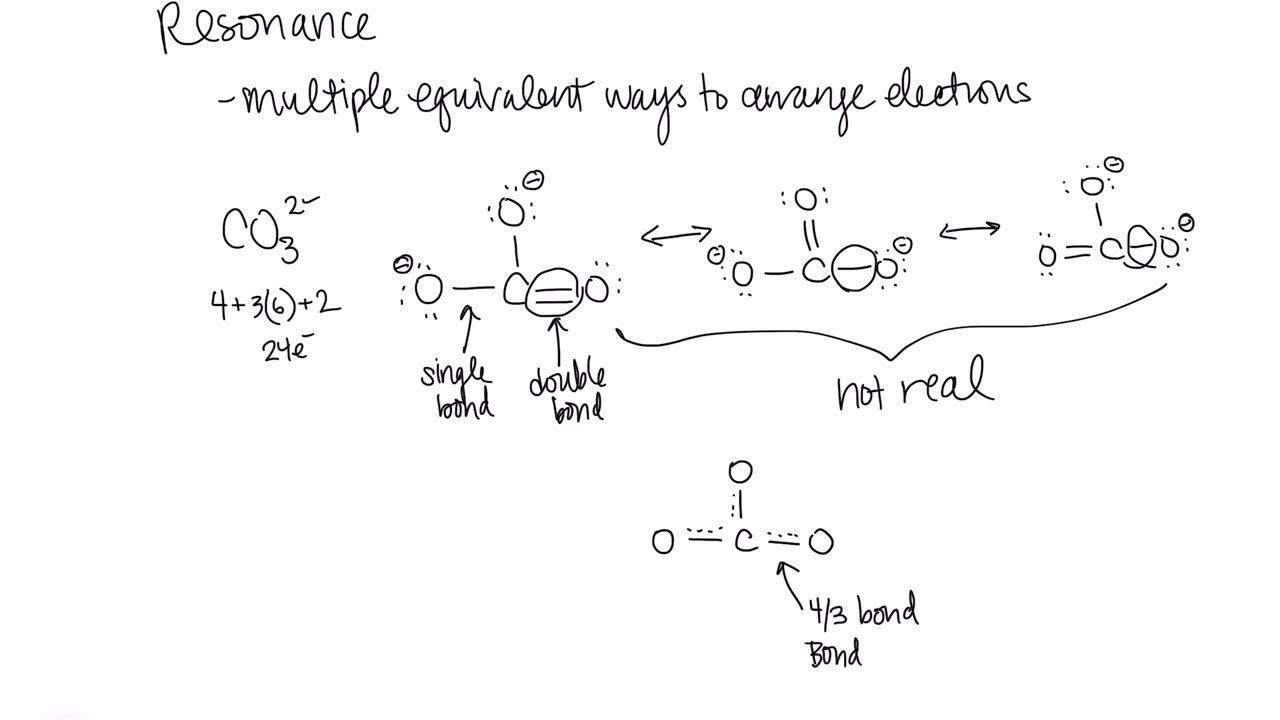 Resonance
- multiple equivalent ways to arrange electrons
CO₃²⁻
4+3(6)+2
24e⁻
:O: ⊖
⊖ :O — C = O:
↔
:O:
⊖ O — C — O ⊖
↔
:O: ⊖
O = C — O: ⊖
single bond
double bond
not real
O
O = C = O
4/3 bond
Bond